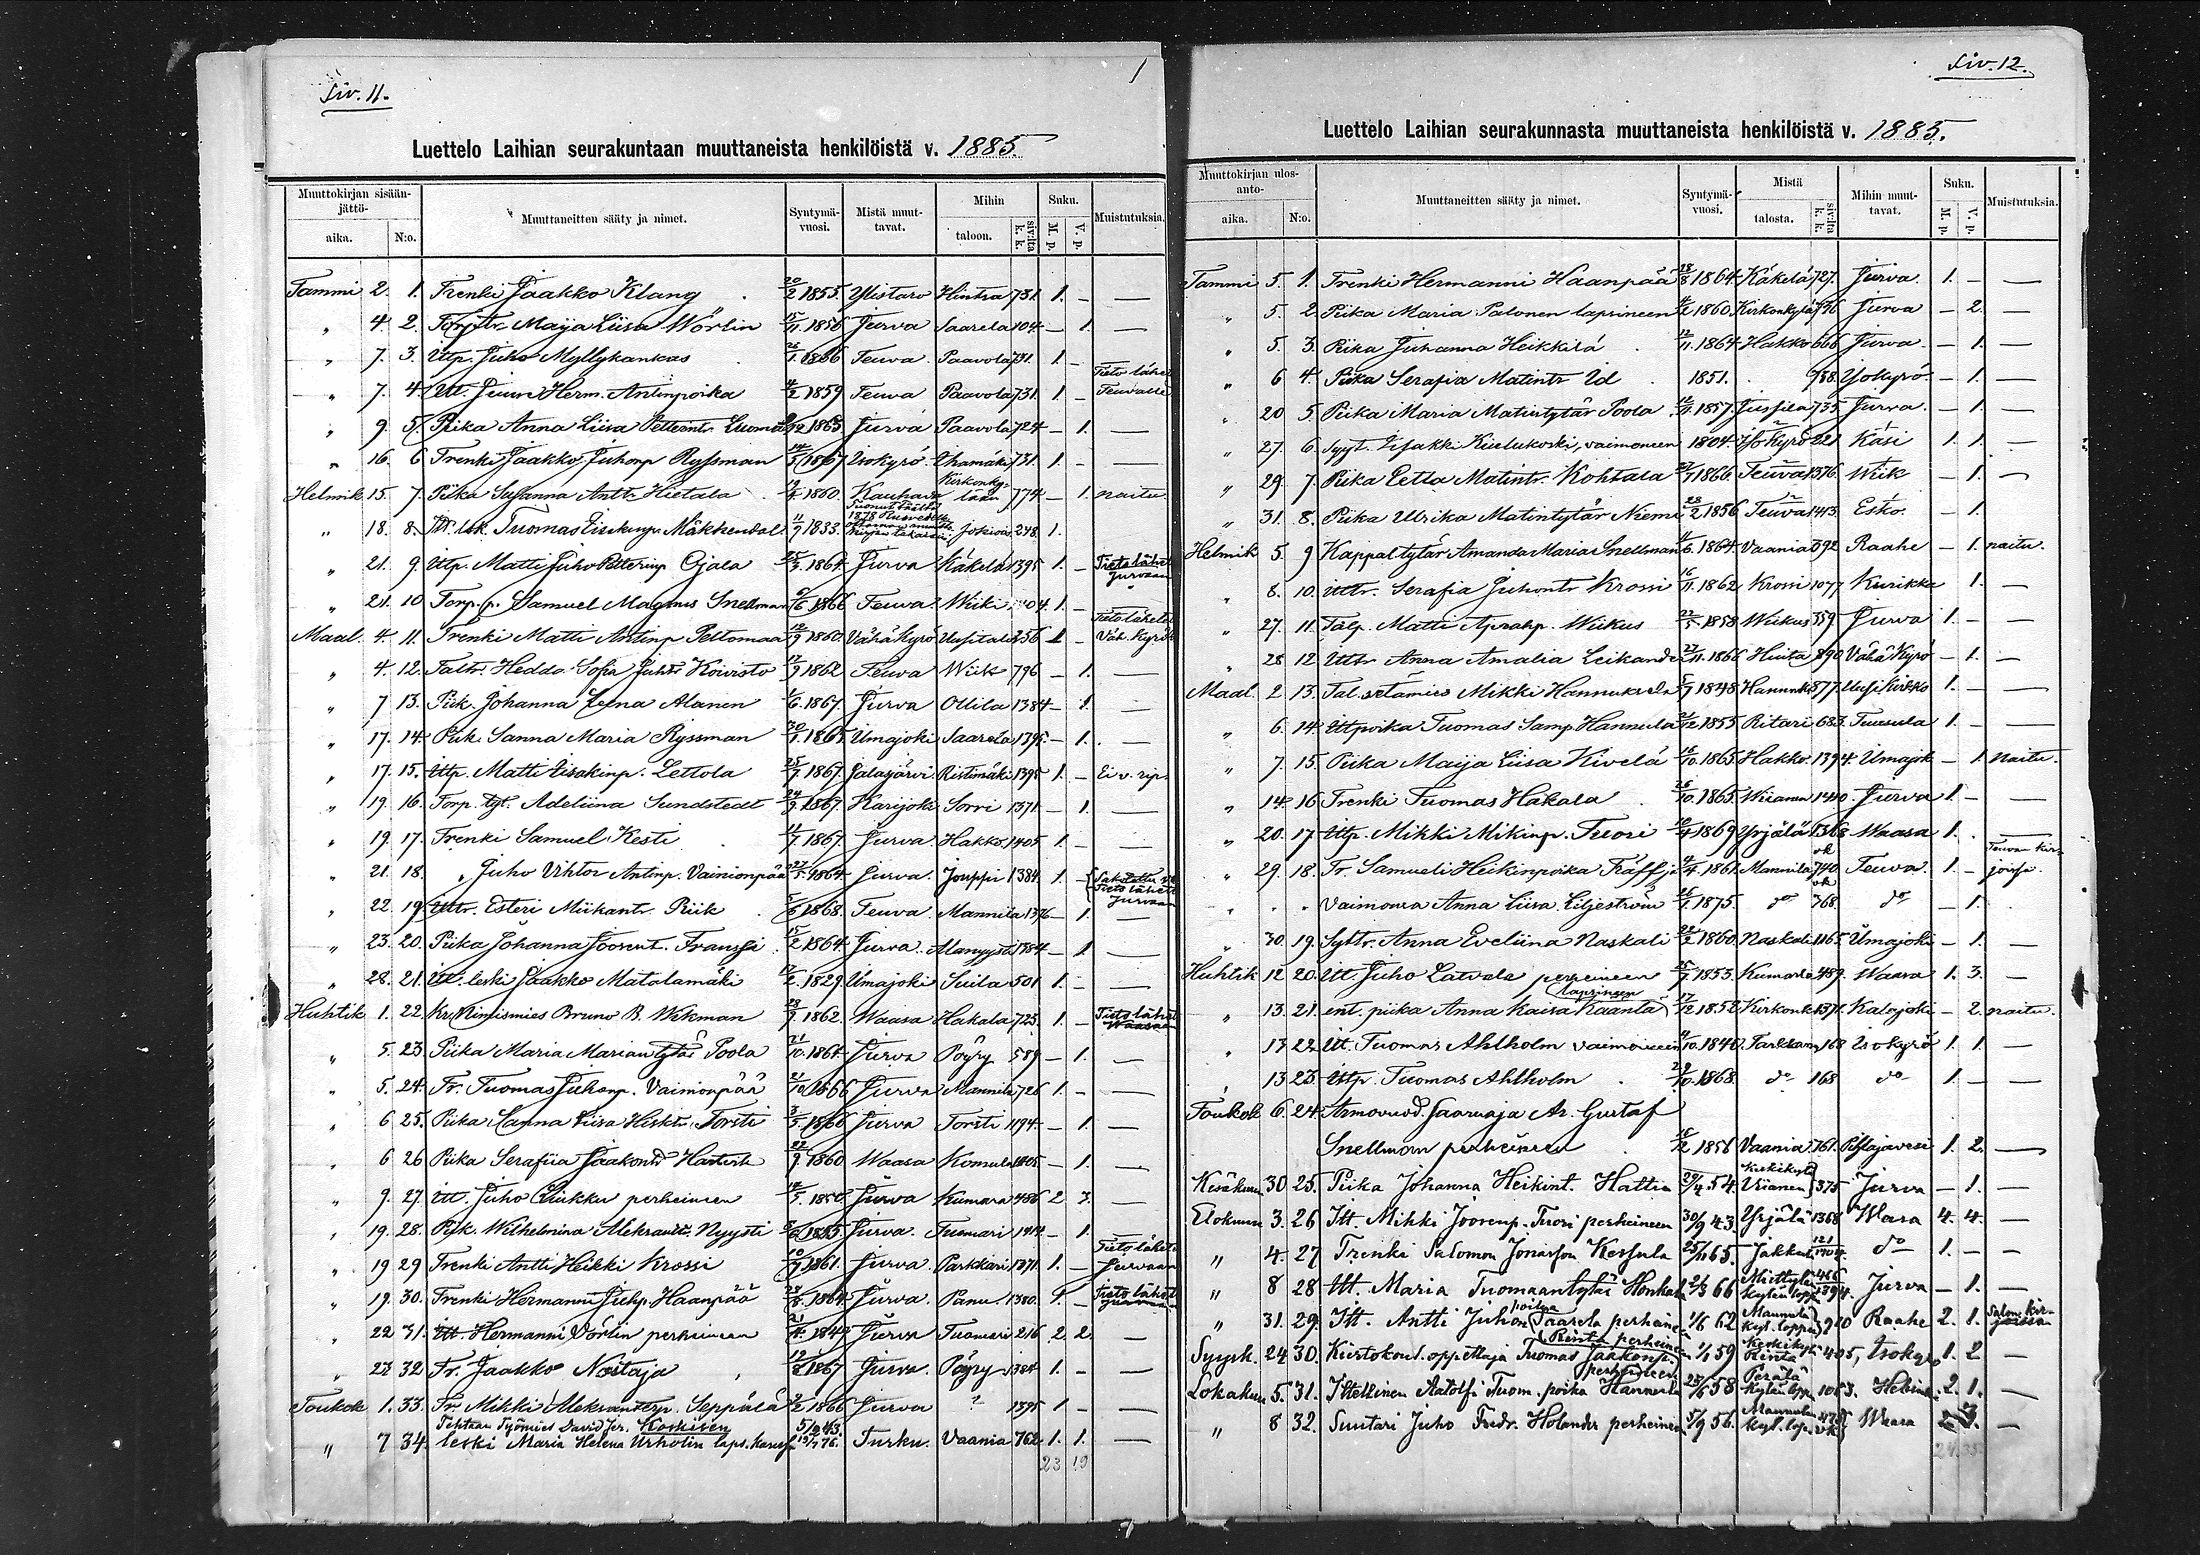 Siv. 11.
1
Luettelo Laihian seurakuntaan muuttaneista henkilöistä v. 1885.
Muuttokirjan sisään-jättö- aika. N:o. Muuttaneitten sääty ja nimet. Syntymä-vuosi. Mistä muut-tavat. Mihin taloon. siv:lta k. k. Suku. M. p. V. p. Muistutuksia.
Tammi 2. 1. Trenki Jaakko Klang 20/2 1853. Ylistaro Hintsa 731. 1. - —
" 4 2. Torp.tr. Maija Liisa Wörlin 15/11. 1856 Jurva Saarela 104. — 1. —
" 7. 3. Ittp. Juho Myllykankas 26/1. 1866 Teuva Paavola 731. 1 - —
" 7. 4. Itt. Juur. Herm. Antinpoika 4/2 1859 Teuva Paavola 731. 1 - Tieto lähet. Teuvalle
" 9 5. Piika Anna Liisa 1865 Jurva Paavola 724 — 1. —
" 16. 6 Trenki Jaakko Juhonp Ryssman 1867 Isokyrö 731. 1. - —
Helmik 15. 7. Piika Susanna Anttr. Hietala 1860. Kauhava Kirkonky-lään 774 — 1. naitu
" 18. 8. Tuomas 11/9 1833. Jokisa 248 1.
" 21. 9. Ittp. Matti Juho Petterinp Ojala 1864 Jurva Käkelä 1395 1. - Tieto lähet Jurvaan
" 21. 10 Torp.p. Samuel Magnus Snellman 1866 Teuva Wiiki 1404. 1. - —
Maal. 4. 11. Trenki Matti Antinp Peltomaa 1860 Vähäkyrö 256 1 - Tieto lähetet Väh. Kyröö
" 4. 12. Taltr. Hedda Sofia Juhtr Koivisto 17/9 1862 Teuva Wiik 796 — 1. —
" 7 13. Piik. Johanna Leena Alanen 1/6. 1867. Jurva Ollila 1384 — 1. —
" 17. 14. Piik. Sanna Maria Ryssman 30/1. 1865 Ilmajoki Saarela 1395 — 1. —
" 17. 15. Ittp. Matti Iisakinp. Lettola 25/7 1867. Jalasjärvi Ristimäki 1395 1. - Ei v. rip.
" 19. 16. Torp. tyt. Adeliina Sundstedt 24/9 1867. Karijoki Sorri 1371 — 1. —
" 19. 17. Trenki Samuel Kesti 11/7 1867. Jurva Hakko 1405 1. - —
" 21. 18. " Juho Vihtor Antinp. Vainionpää 27/5 1864 Jurva. Jouppi 1384 1. - Tieto lähet Jurvaan
" 22. 19 Ittr. Esteri Miikantr. Piik 1868. Teuva Mannila 1376 — 1. —
" 23. 20. Piika Johanna Joosent. Franssi 15/2 1864 Jurva 1384 — 1. —
" 28. 21. Itt. leski Jaakko Matalamäki 17/2. 1829 Ilmajoki Suila 501 1. - —
Huhtik 1. 22. Kr. Nimismies Bruno B. Wekman 28/9. 1862. Waasa Hakala 723. 1. - Tieto lähet Waasaan
" 5. 23. Piika Maria Mariantytär Poola 21/10. 1864 Jurva Pöyry 589 — 1. —
" 5. 24. Fr. Tuomas Juhonp. Vainionpää 21/10 1866 Jurva Mannila 726 1. - —
" 6 25. Piika Sanna Liisa Heikktr. Torsti 3/3. 1866 Jurva Torsti 1194 — 1. —
" 6 26 Piika Serafiia Jaakontr 22/9 1860 Waasa Komula 1405 — 1. —
" 9. 27. Itt. Juho Luukku perheineen Jurva Kumara 486 2 3. —
" 19. 28. Piik. Wilhelmina Nyysti 1855 Jurva. Tuomari 1414 — 1.
" 19 29 Trenki Antti Heikki Krossi 10/9 1861. Jurva. Parkkari 1371. 1. — Tieto lähet. Jurvaan
" 19. 30. Trenki Hermanni Juhp. Haanpää 28/8. 1864 Jurva. Panu 1380. 1. - Tieto lähet Jurvaan
" 22 31. Itt. Hermanni Vörlin perheineen 1849 Jurva Tuomari 216 2 2. —
" 23 32 Tr. Jaakko Nostaja 1867 Jurva Pöyry 1384 1. - —
Toukok 1. 33. Tr. Mikki Seppälä 1866 Jurva ? 1395 1 — —
Tehtaan Työmies David Jer. Koskisen 5/12 43.
" 7 34. leski Maria Helena Urholin laps. 76. Turku. Vaania 762. 1. 1. —
23 19
Siv. 12.
Luettelo Laihian seurakunnasta muuttaneista henkilöistä v. 1885.
Muuttokirjan ulos-anto- aika. N:o. Muuttaneitten sääty ja nimet. Syntymä-vuosi. Mistä talosta. siv:lta k. k. Mihin muut-tavat. Suku. M. p. V. p. Muistutuksia.
Tammi 5. 1. Trenki Hermanni Haanpää 28/8 1864 Käkelä 727. Jurva. 1. — —
" 5. 2. Piika Maria Palonen lapsineen 1860. Kirkonkylä 736 Jurva — 2. —
" 5. 3. Piika Juhanna Heikkilä 12/11. 1864 Hakko 666 Jurva. — 1. —
" 6 4. Piika Serafia Matintr Ud 1851. 758. Isokyrö. — 1. —
" 20 5. Piika Maria Matintytär Poola 1857. Jusfila 735 Jurva. — 1. —
" 27. 6. Sytt. Iisakki Kiulukoski, vaimoneen 1804. Isokyrö 221. Käsi 1. 1. —
" 29. 7. Piika Eetla Matintr. Kohtala 1866. Teuva 1376. Wiik — 1. —
" 31. 8. Piika Ulrika Matintytär Niemi 28/2 1856 Teuva 1413. Esko. — 1.
Helmik 5. 9 Kappal. tytär Amanda Maria Snellman 1864. Vaania 692 Raahe — 1. naitu.
" 8. 10. Ittr. Serafia Juhontr Krossi 16/11. 1862 Krossi 1077 Kurikka 1. —
" 27. 11 Talp. Matti Wiikus 1858 Wiikus 559 Jurva 1. — —
" 28 12. Ittr Anna Amalia Leikanda 27/11. 1866 Hiuta 890 Vähä Kyrö — 1. —
Maal. 2. 13. Tal. Mikki Hannuksela 1848 Hannuks 877. Uusi Kirkko 1. —
" 6. 14. Ittpoika Tuomas Samp. Hannula 1855 Ritari 683. Tuusula 1. —
" 7. 15. Piika Maija Liisa Kivelä 1865 Hakko 1394. Ilmajok — 1. Naitu.
" 14. 16 Trenki Tuomas Hakala 26/10. 1865. Wiianen 1440. Jurva 1. — —
" 20. 17. Ittp. Mikki Mikinp. Tuori 1869 Yrjälä 1368 Waasa 1. —
" 29. 18. Tr. Samueli Heikinpoika Träffji 1861. Mannila 740 Teuva. 1. — Teuvan kir-joissa.
" " Vaimonsa Anna Liisa Liljeström 1875. do 768. do — 1.
" 30. 19. Syttr. Anna Eveliina Naskali 22/2 1860. Naskali 1165. Ilmajoki — 1. —
Huhtik 12 20. Itt. Juho Latvala perheineen 25/7 1853. Kumarla 489. Waasa 1. 3. —
" 13. 21. ent. piika Anna Kaisa Kaanta lapsineen 17/12 1852. Kirkonk. 1371. Kalajoki — 2. naitu.
" 13 22. Itt. Tuomas Ahlholm vaimoneen 1840. Tarkkan. 168 Isokyrö 1. 1. —
" 13 23. Ittp. Tuomas Ahlholm 29/10. 1868. do 168 do 1. — —
Toukok 6. 24. Armovuod. Saarnaja Ar. Gustaf
Snellman perheineen 1856 Vaania. 761. Pihlajavesi 1. 2. —
Kesäkuu 30 25. Piika Johanna Heikint. Hattia 29/4. 54. Keskikylä Wiianen 375 Jurva — 1. —
Elokuun 3. 26 Itt. Mikki Joosenp. Tuori perheineen 30/9 43. Yrjälä 1368 Wasa 4. 4. —
" 4. 27 Trenki Salomon Jonasson Kessula 25/11 65. Jakkula 121 1404. do 1. — —
" 8 28 Itt. Maria Tuomaantytär Honkala 21/3 66 Miettylä Kylän lopp. 466 1394. Jurva — 1. —
" 31. 29. Itt. Antti Juhon poika Saarela perheineen 1/6 62 Mannula Kyl. loppu 920 Raahe 2. 1. Salon kir-joissa
Syysk. 24 30. Kiertokoul. oppettaja Tuomas Jaakonp. Rinta perheineen 1/1 59 Keskikyl. Rinta 405, Isokyrö 1. 2 —
Lokakuu 5. 31. Itsellinen Aatolfi Tuom. poika Hannula perheineen 25/6 58 Perälä Kylän lopp. 1063. Helsinki 2. 1. —
" 8 32. Suutari Juho Fredr. Holander perheineen 5/9 56. Mannula Kyl. lop. Waasa 2 3. —
24. 35